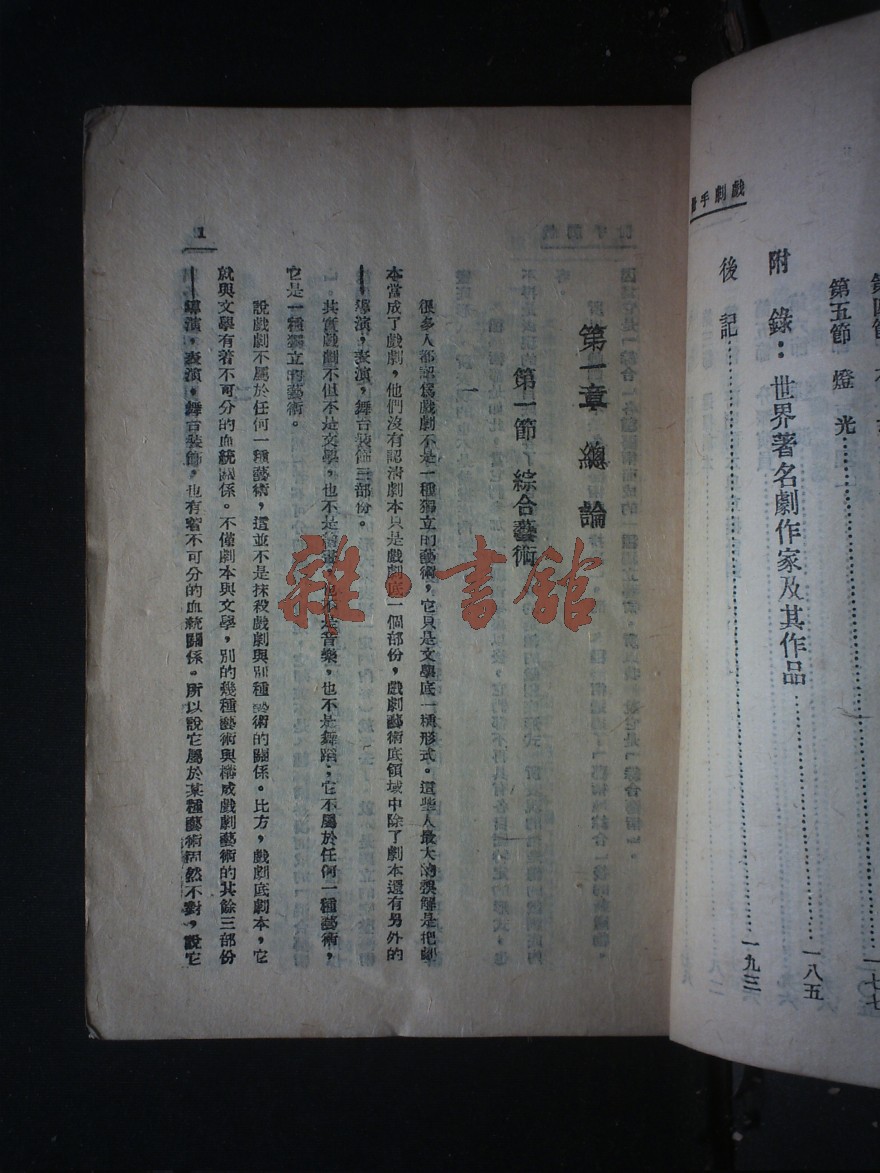 戲劇手
第五節 燈光…………一八五
附錄：世界著名劇作家及其作品
後記…………一九三
第一章 總論
第一節 綜合藝術
一
很多人都認爲戲劇不是一種獨立的藝術，它只是文學底一種形式。這些人最大的誤解是把劇
本當成了戲劇，他們沒有認清劇本只是戲劇底一個部份，戲劇藝術底領域中除了劇本還有另外的
——導演，表演，舞台裝飾三部份。
其實戲劇不但不是文學，也不是繪畫，也不是音樂，也不是舞蹈；它不屬於任何一種藝術，
它是一種獨立的藝術。
說戲劇不屬於任何一種藝術，這並不是抹殺戲劇與別種藝術的關係。比方，戲劇底劇本，它
就與文學有着不可分的血統關係。不僅劇本與文學，別的幾種藝術與構成戲劇藝術的其餘三部份
——導演，表演，舞台裝飾，也有着不可分的血統關係。所以說它屬於某種藝術固然不對，說它
1
雜·書館